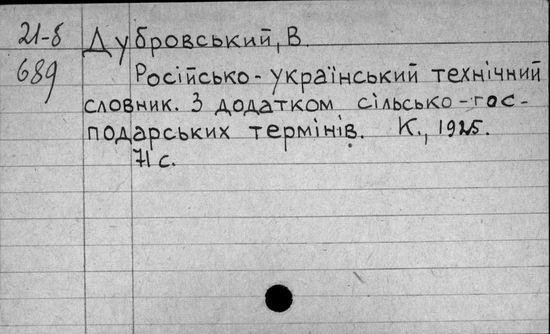 21-б Дубровський, В.
689 Російсько-український технічний
словник. З додатком сільсько-гос-
подарських термінів. К., 1925.
71 с.